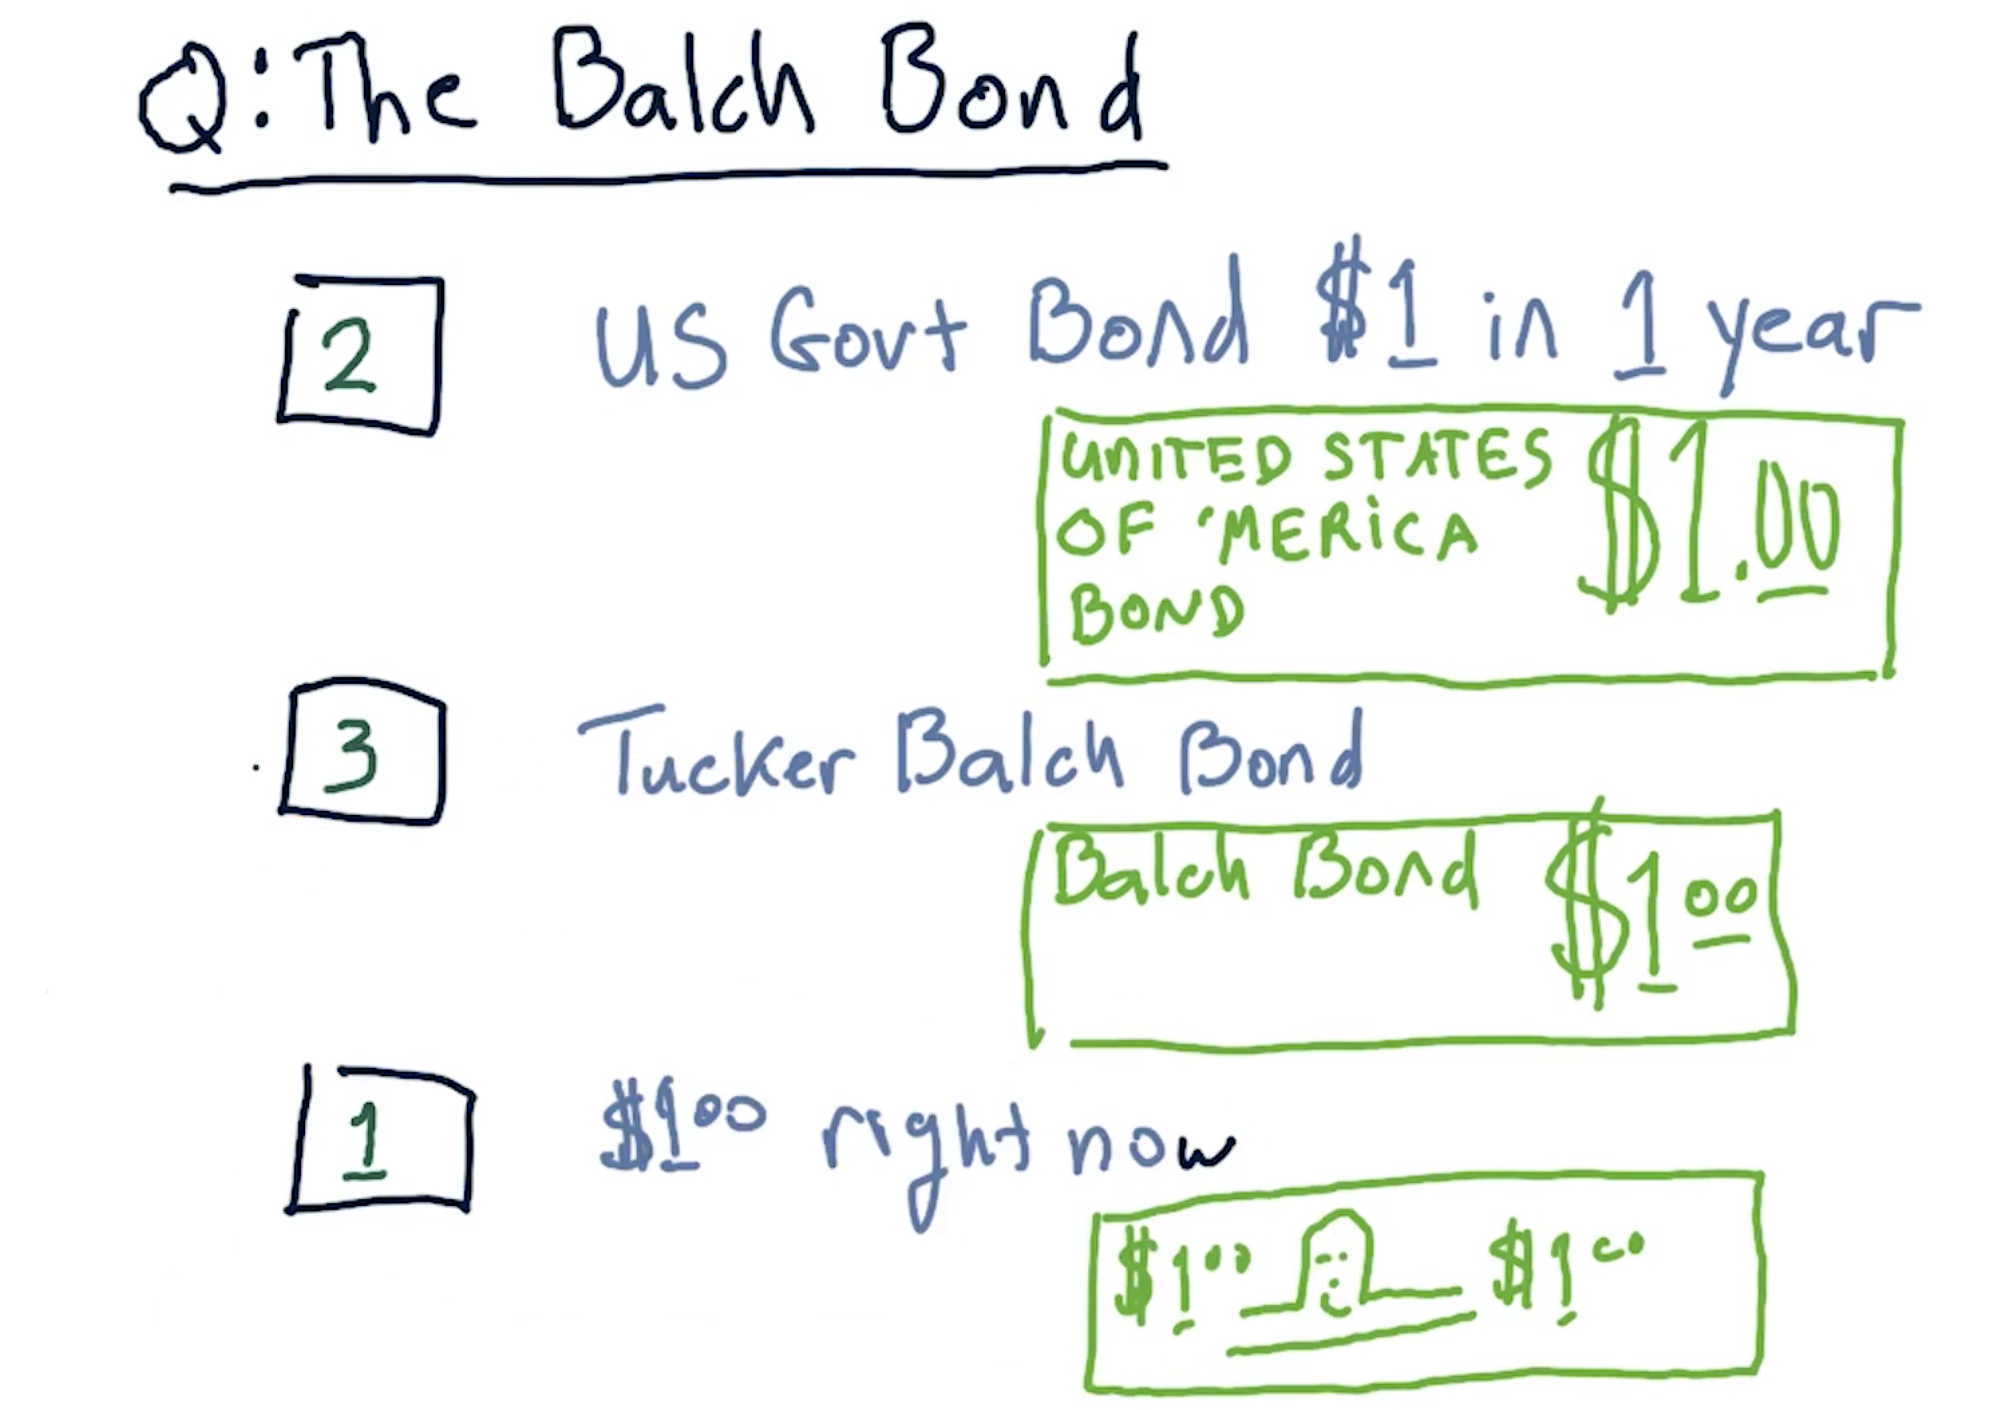 Q: The Balch Bond
2 US Govt Bond $1 in 1 year
UNITED STATES $1.00
OF 'MERICA
BOND
3 Tucker Balch Bond
Balch Bond $1 00
1 $1 00 right now
$1 00 $1 00